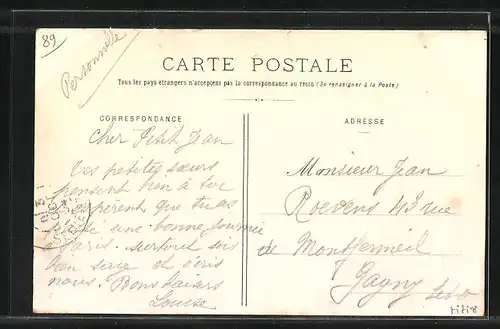 89
Personnelle
CARTE POSTALE
Tous les pays étrangers n'acceptent pas la correspondance au recto (Se renseigner à la Poste)
CORRESPONDANCE
ADRESSE
Cher Petit Jean
Tes petites sœurs
pensent bien à toi
espèrent que tu as
passé une bonne journée
à Paris. surtout sois
bien sage et écris
nous. Bons baisers
Louise
Monsieur Jean
Roevens 43 rue
de Montfermeil
Gagny